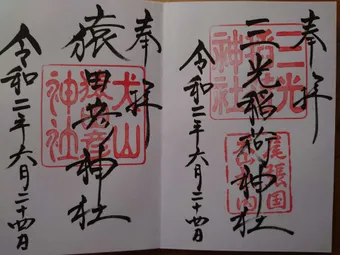 奉拝
三光稲荷神社
三光稲荷神社
令和二年六月二十四日
奉拝
猿田彦神社
犬山
神社
令和二年六月二十四日